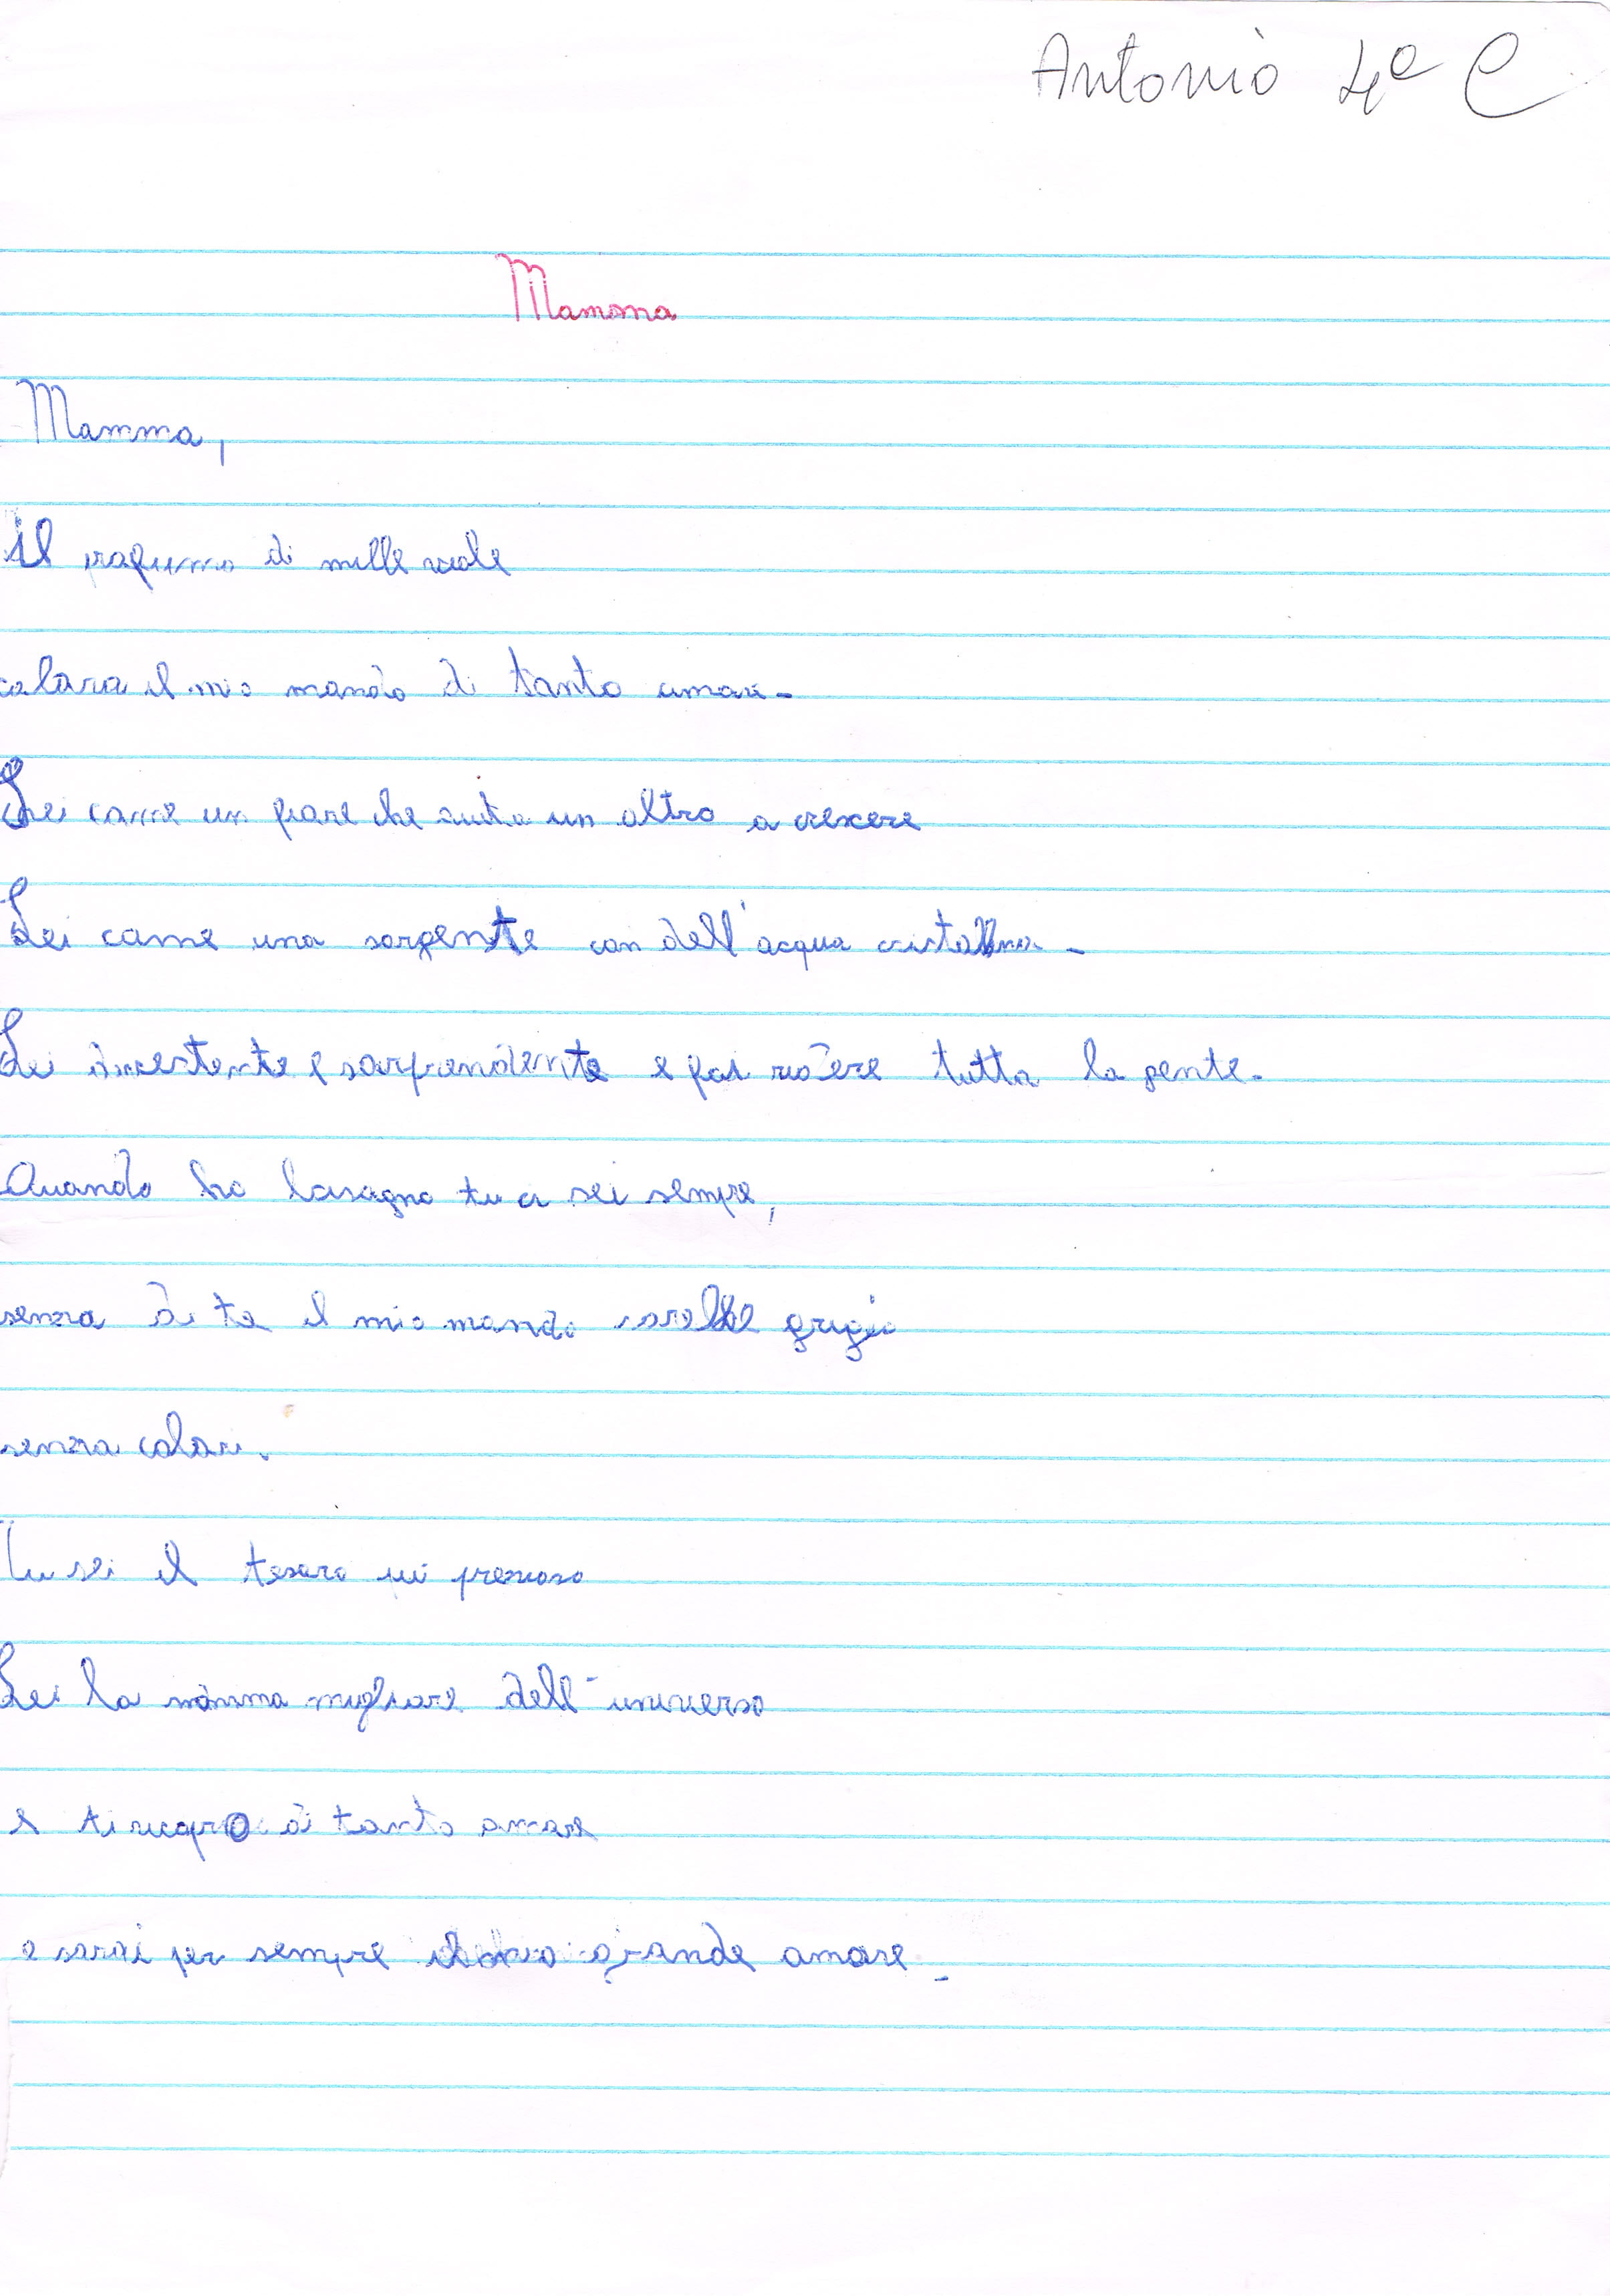 Antonio 4ª C
Mamma
Mamma,
il profumo di mille viole
colora il mio mondo di tanto amore.
Sei come un fiore che aiuta un altro a crescere
Sei come una sorgente con dell'acqua cristallina.
Sei divertente e sorprendente e fai ridere tutta la gente.
Quando ho bisogno tu ci sei sempre,
senza di te il mio mondo sarebbe grigio
senza colori.
Tu sei il tesoro più prezioso
Sei la mamma migliore dell'universo
e ti ricopro di tanto amore
e sarai per sempre il mio grande amore.